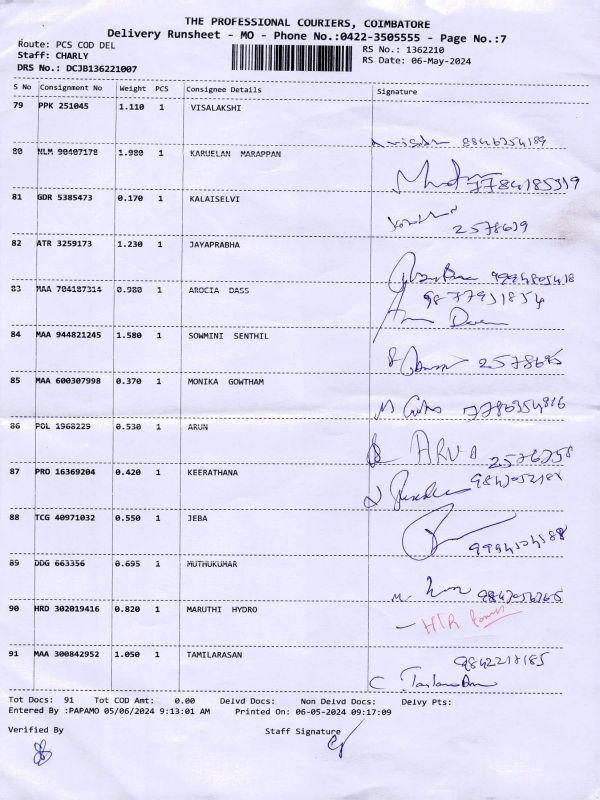 THE PROFESSIONAL COURIERS, COIMBATORE
Delivery Runsheet - MO - Phone No.:0422-3505555 - Page No.:7
Route: PCS COD DEL
RS No.: 1362210
Staff: CHARLY
RS Date: 06-May-2024
DRS No.: DCJB136221007
S No Consignment No Weight PCS Consignee Details Signature
79 PPK 251045 1.110 1 VISALAKSHI
80 NLM 90407178 1.980 1 KARUELAN MARAPPAN
7784185319
81 GDR 5385473 0.170 1 KALAISELVI
82 ATR 3259173 1.230 1 JAYAPRABHA
83 MAA 704187314 0.980 1 AROCIA DASS
84 MAA 944821245 1.580 1 SOWMINI SENTHIL
85 MAA 600307998 0.370 1 MONIKA GOWTHAM
86 POL 1968229 0.530 1 ARUN
87 PRO 16369204 0.420 1 KEERATHANA
88 TCG 40971032 0.550 1 JEBA
89 DDG 663356 0.695 1 MUTHUKUMAR
90 HRD 302019416 0.820 1 MARUTHI HYDRO
91 MAA 300842952 1.050 1 TAMILARASAN
Tot Docs: 91 Tot COD Amt: 0.00 Delvd Docs: Non Delvd Docs: Delvy Pts:
Entered By :PAPAMO 05/06/2024 9:13:01 AM Printed On: 06-05-2024 09:17:09
Verified By Staff Signature